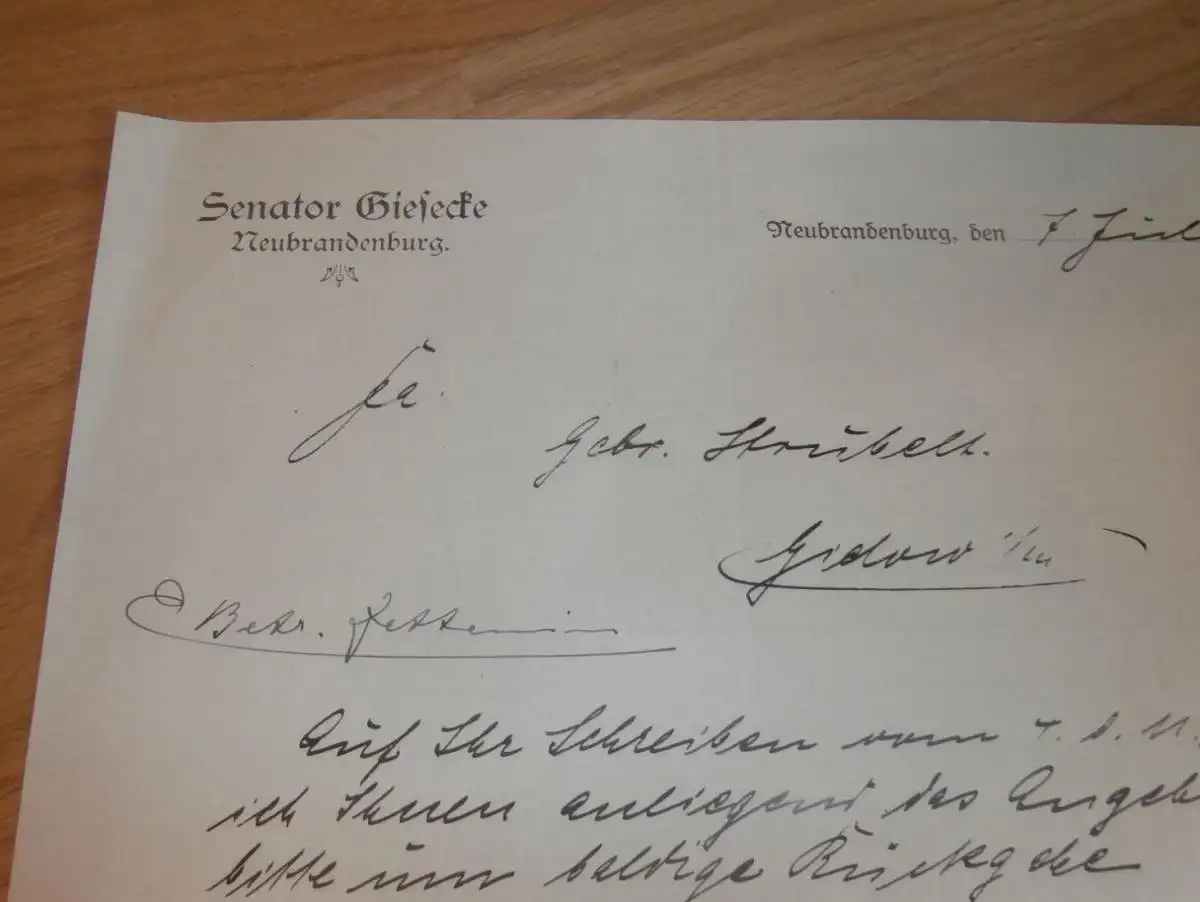 Senator Giesecke
Neubrandenburg.
Neubrandenburg, den 7. Jul
Fa.
Gebr. Strübelt.
Gidow i/M
Betr. Jettemin
Auf Ihr Schreiben vom 4. d. M.
ich Ihnen anliegend das Angeb
bitte um baldige Rückgabe